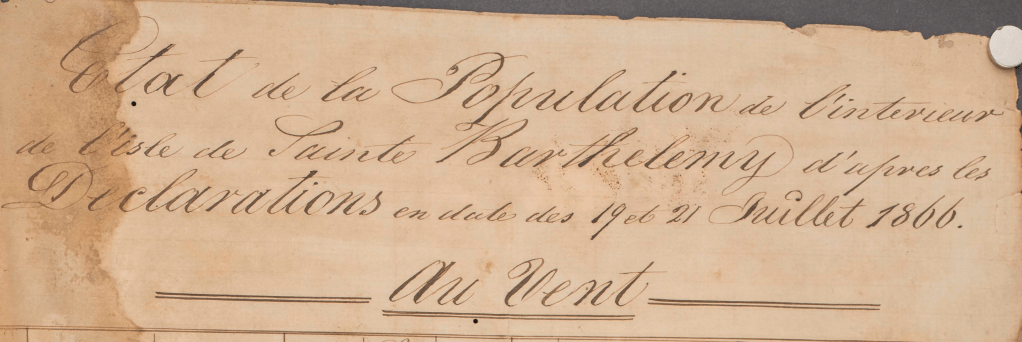 Etat de la Population de l'interieur
de l'isle de Sainte Barthelemy d'apres les
Declarations en date des 19 et 21 Juillet 1866.
Au Vent